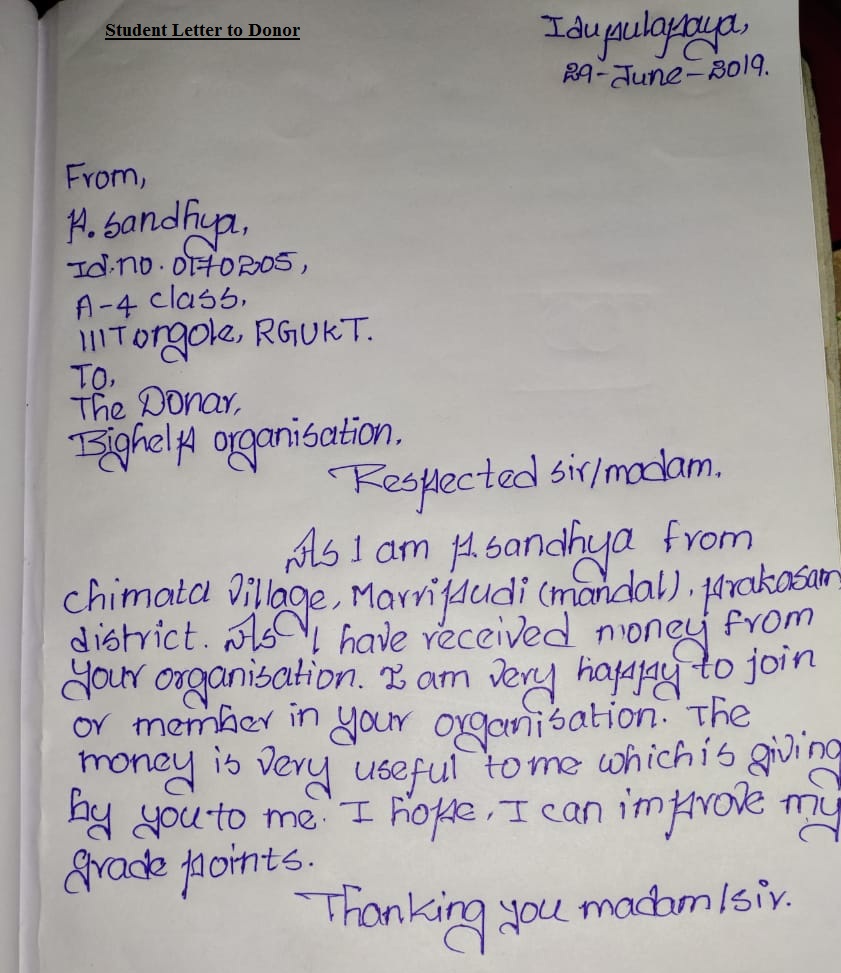 Student Letter to Donor
Idupulapaya,
29-June-2019.
From,
P. Sandhya,
Id.no. 0170205,
A-4 class,
IIIT ongole, RGUKT.
To,
The Donar,
Bighelp organisation.
Respected sir/madam.
As I am P. sandhya from
chimata village, Marripudi (mandal), prakasam
district. As I have received money from
your organisation. I am very happy to join
or member in your organisation. The
money is very useful to me which is giving
by you to me. I hope, I can improve my
grade points.
Thanking you madam/sir.